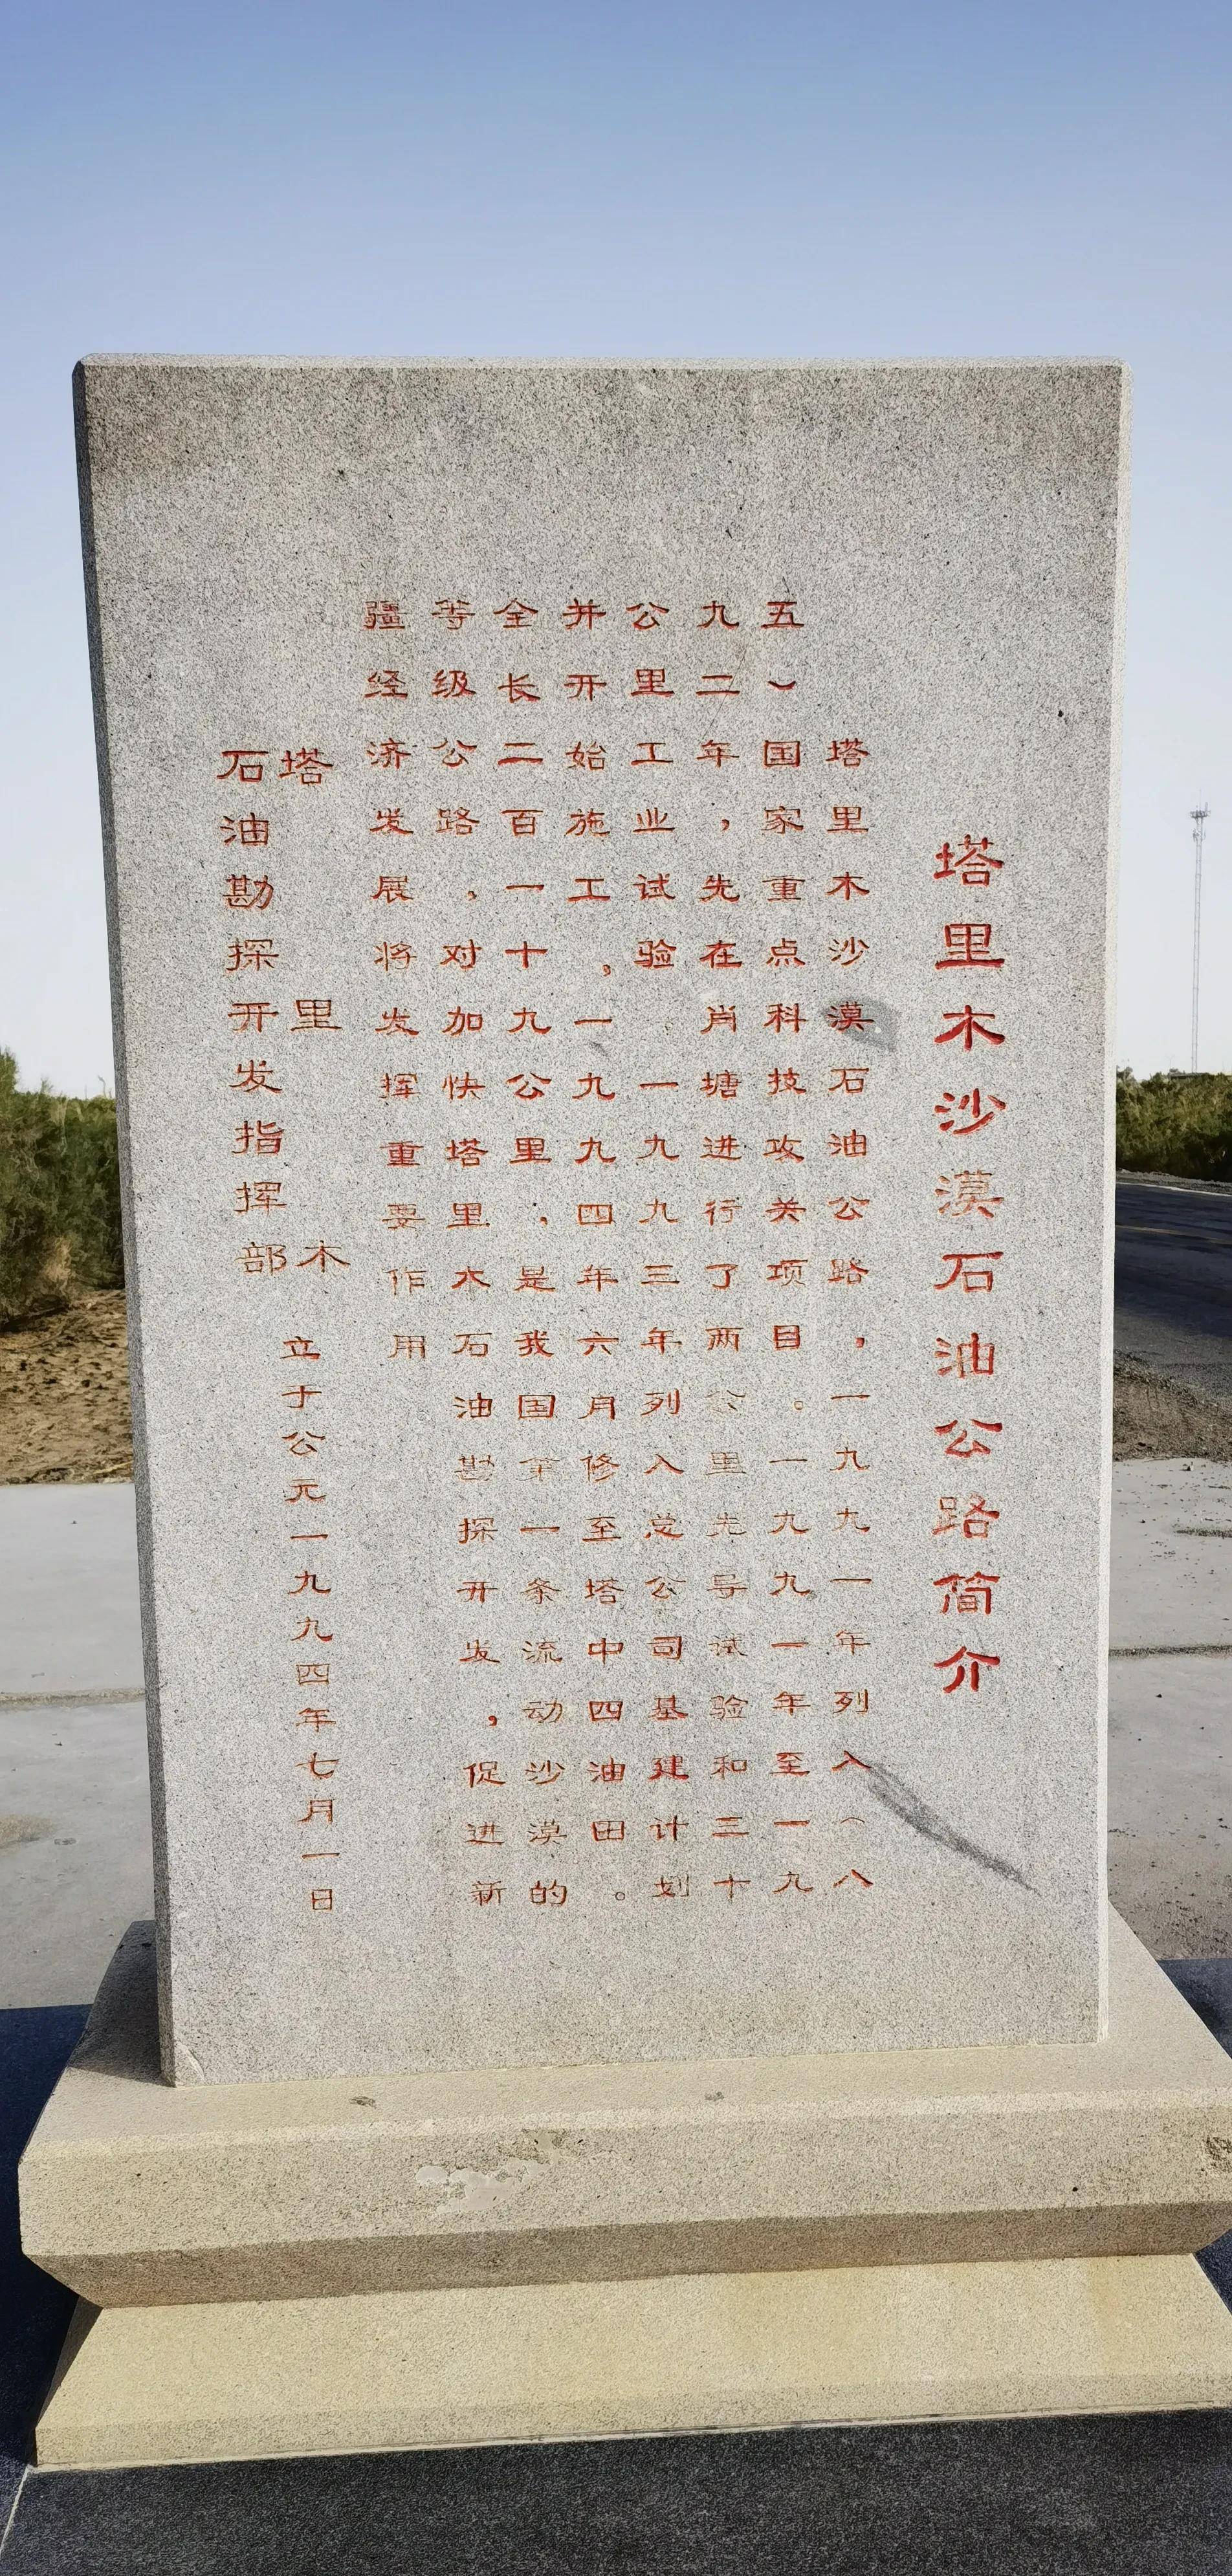 塔里木沙漠石油公路简介
塔里木沙漠石油公路，一九九一年列入（八
五）国家重点科技攻关项目。一九九一年至一九
九二年，先在肖塘进行了两公里先导试验和三十
公里工业试验。一九九三年列入总公司基建计划
并开始施工，一九九四年六月修至塔中四油田。
全长二百一十九公里，是我国第一条流动沙漠的
等级公路，对加快塔里木石油勘探开发，促进新
疆经济发展将发挥重要作用
塔里木
石油勘探开发指挥部
立于公元一九九四年七月一日